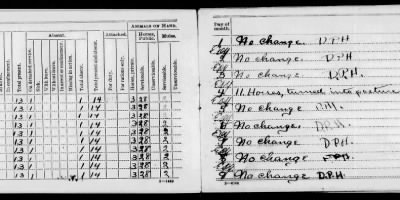 ANIMALS ON HAND.
Absent.
Attached.
Horses, Public.
Mules.
In confinement.
Total present.
On detached service.
Sick.
Without leave.
Total absent.
Total present and absent.
For duty.
For rations only.
Horses, private.
Serviceable.
Unserviceable.
Serviceable.
Unserviceable.
13 1 1 14 3 28
13 1 1 14 3 28
13 1 1 14 3 28
13 1 1 14 3 28
13 1 1 14 3 28 2
13 1 1 14 3 28 2
13 1 1 14 3 28 2
13 1 1 14 3 28 2
13 1 1 14 3 28 2
Day of month.
1 No change D.P.H
2 No change D.P.H
3 No change D.P.H.
4 11 Horses, turned into pasture
5 No change
6 No change D.P.H.
7 No change D.P.H
8 No change D.P.H
9 No change D.P.H